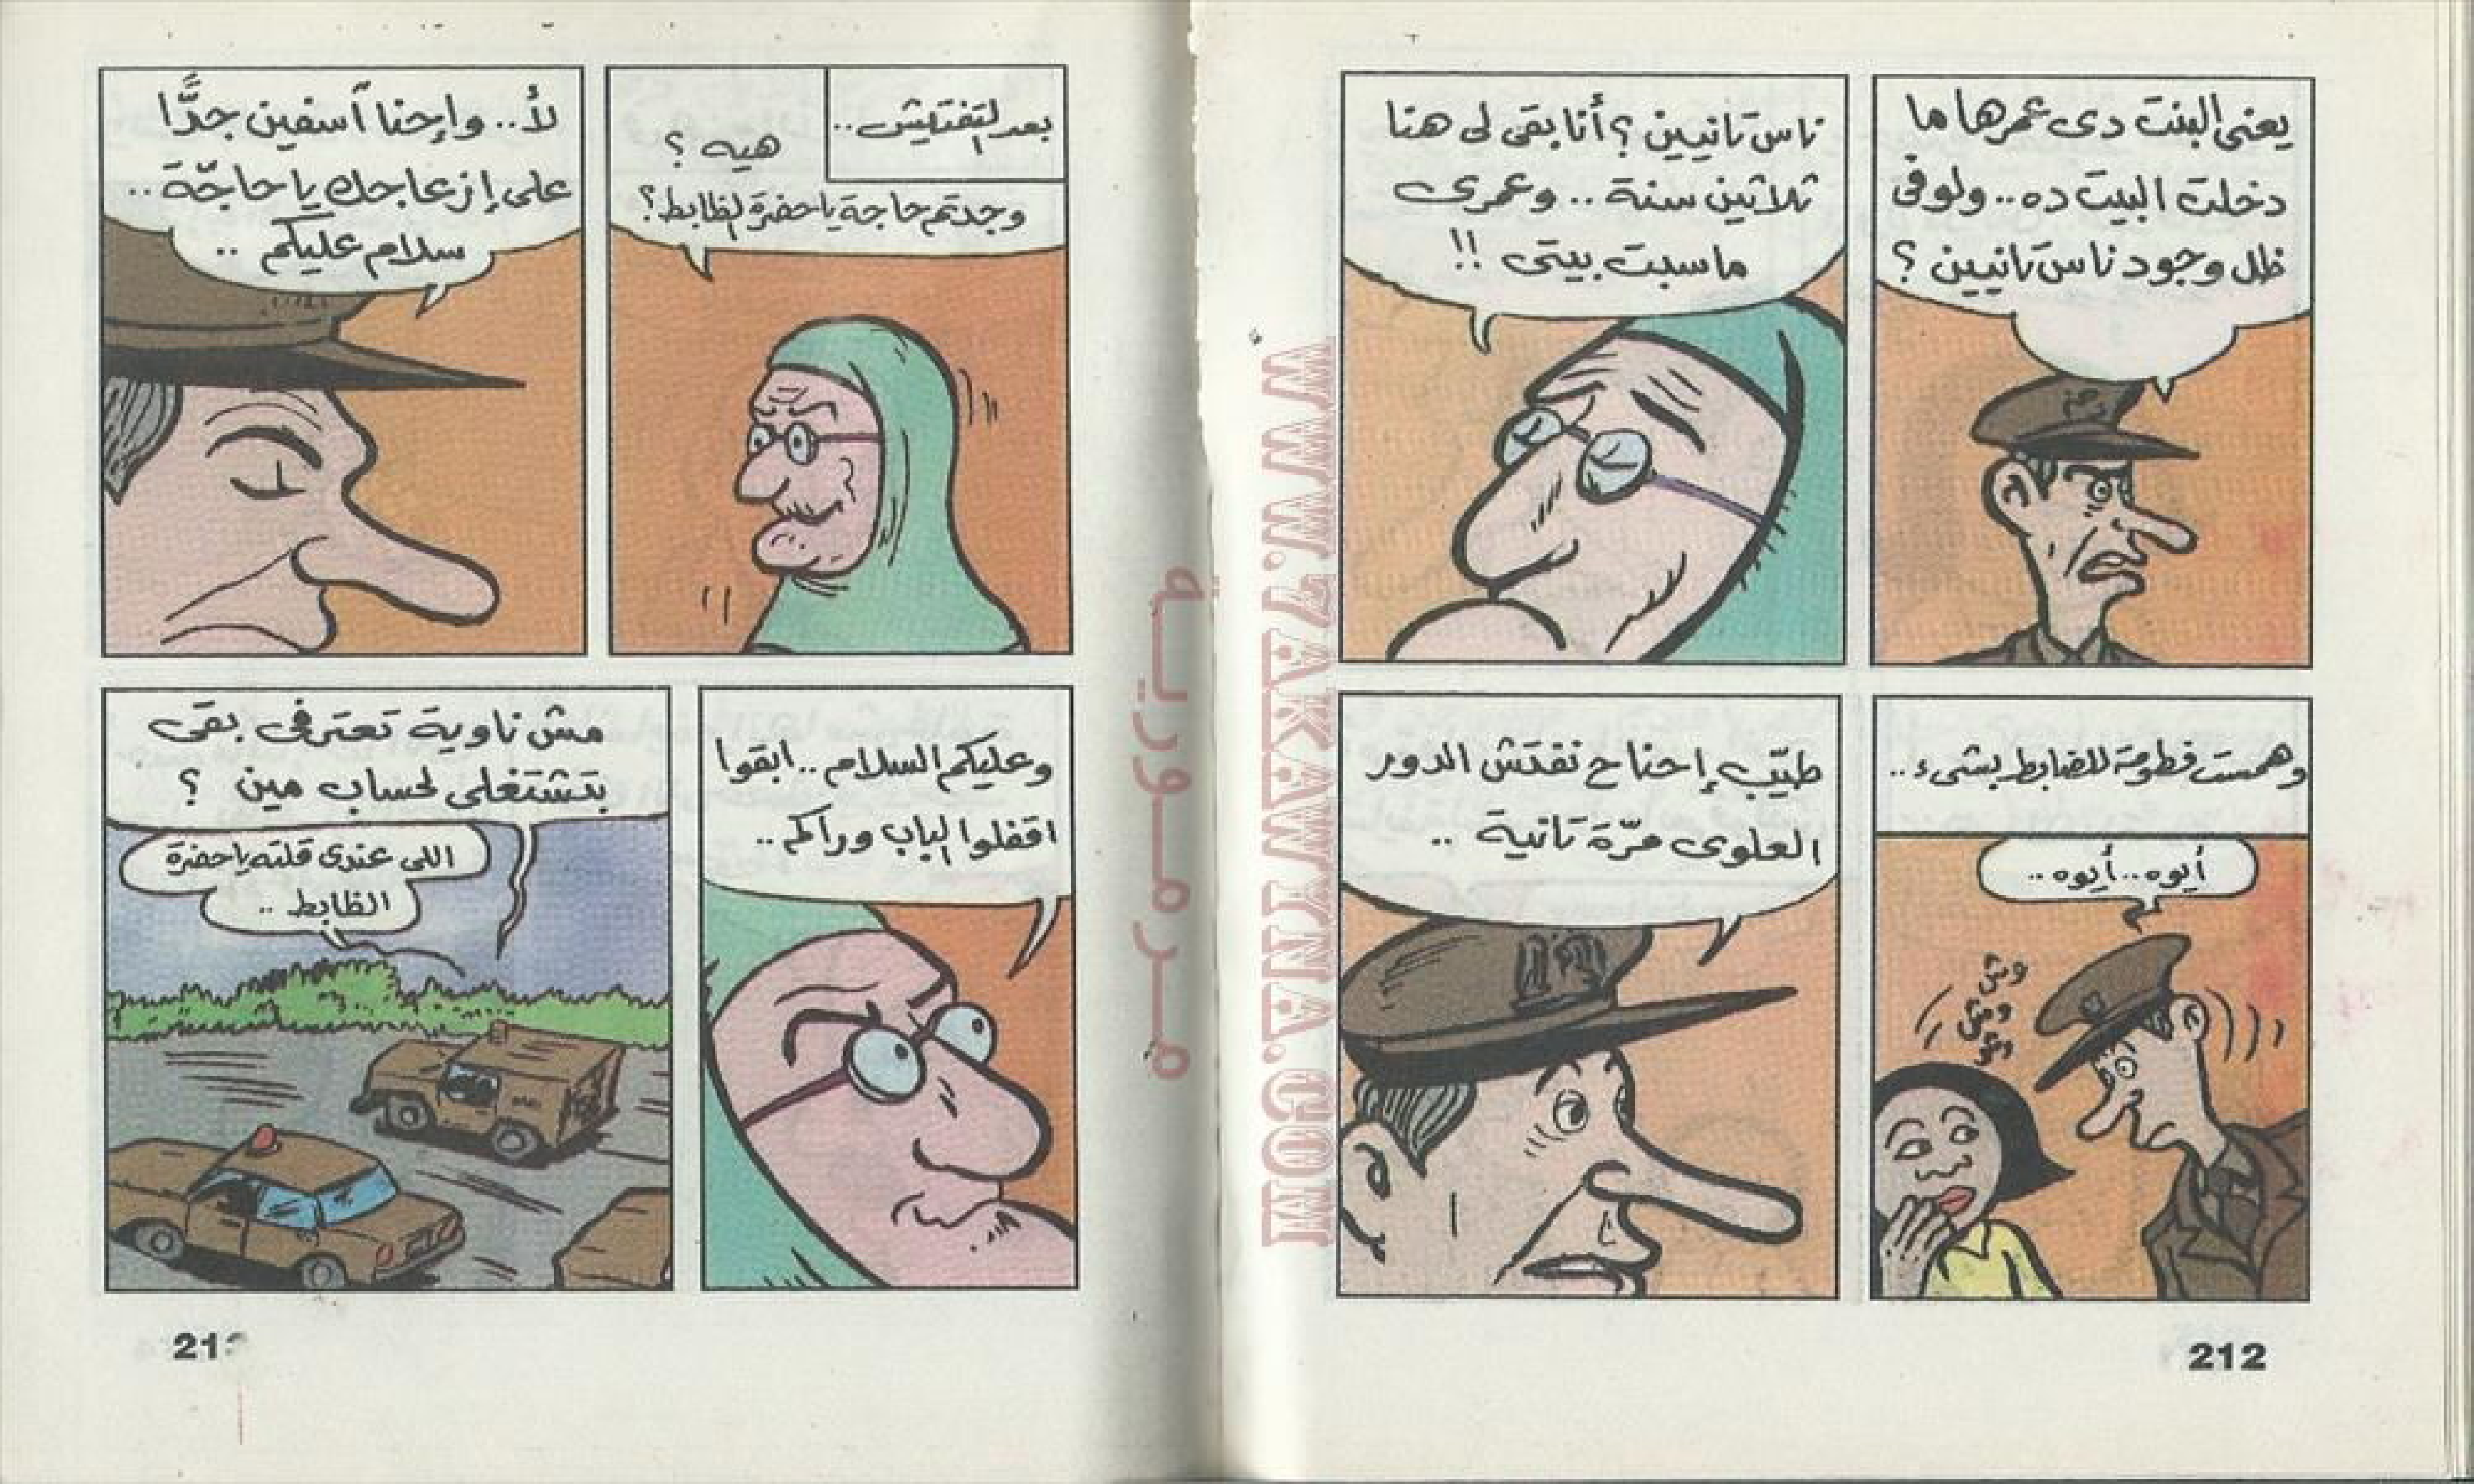 يعنى البنت دى عمرها ما
دخلت البيت ده.. ولو فى
ظل وجود ناس تانيين ؟
ناس تانيين ؟ أنا بقى لى هنا
ثلاثين سنة .. وعمرى
ما سبت بيتى !!
وهمست فطومة للضابط بشىء ..
أيوه.. أيوه ..
وش
وش
وش
طيّب إحنا ح نفتش الدور
العلوى مرّة تانية ..
212
بعد التفتيش..
هيه ؟
وجدتم حاجة يا حضرة الظابط؟
لأ.. وإحنا آسفين جدًّا
على إزعاجك يا حاجّة ..
سلام عليكم ..
وعليكم السلام .. ابقوا
اقفلوا الباب وراكم ..
مش ناوية تعترفى بقى
بتشتغلى لحساب مين ؟
اللى عندى قلته يا حضرة
الظابط ..
213
مرمورية
WWW.7AKAWAINA.COM